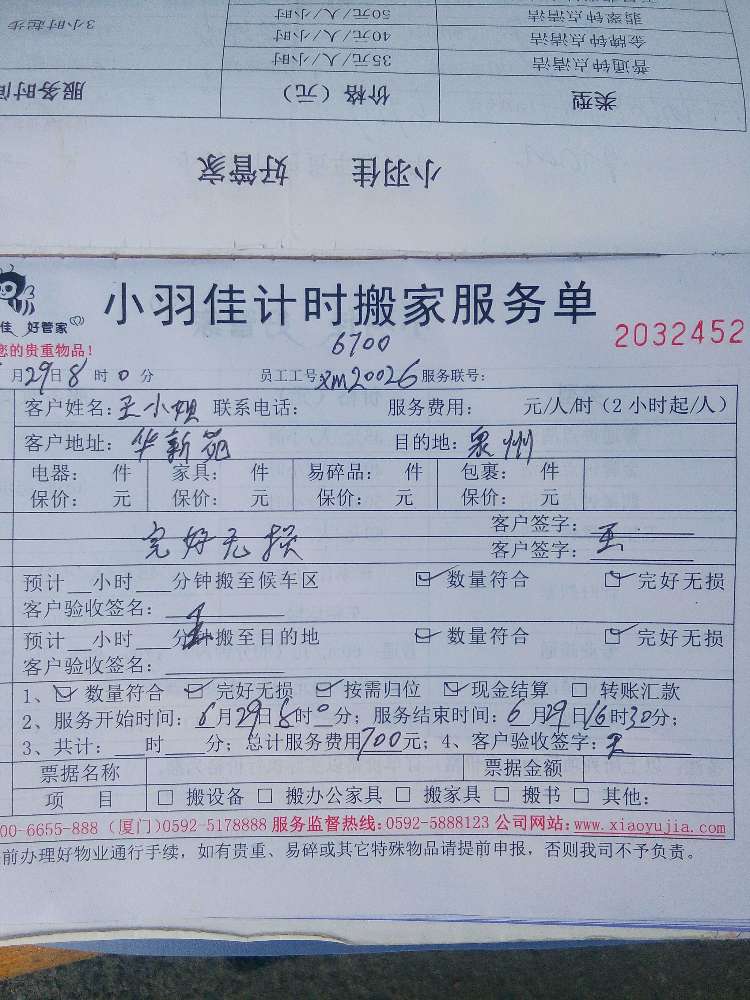 翡翠钟点清洁 50元/人/小时
金牌钟点清洁 40元/人/小时 3小时起步
普通钟点清洁 35元/人/小时
类型 价格（元） 服务时间
小羽佳 好管家
佳 好管家
小羽佳计时搬家服务单
6700
2032452
您的贵重物品！
月29日8时0分 员工工号：xm20026 服务联号：
客户姓名：王小姐 联系电话： 服务费用： 元/人/时（2小时起/人）
客户地址：华新苑 目的地：泉州
电器： 件 家具： 件 易碎品： 件 包裹： 件
保价： 元 保价： 元 保价： 元 保价： 元
完好无损 客户签字：
客户签字：王
预计__小时___分钟搬至候车区 ☑数量符合 ☑完好无损
客户验收签名：王
预计__小时___分钟搬至目的地 ☑数量符合 ☑完好无损
客户验收签名：
1、☑数量符合 ☑完好无损 ☑按需归位 ☑现金结算 □转账汇款
2、服务开始时间：6月29日8时0分；服务结束时间：6月29日16时30分；
3、共计：___时 分；总计服务费用700元；4、客户验收签字：王
票据名称 票据金额
项 目 □搬设备 □搬办公家具 □搬家具 □搬书 □其他：
00-6655-888（厦门）0592-5178888 服务监督热线：0592-5888123 公司网站：www.xiaoyujia.com
前办理好物业通行手续，如有贵重、易碎或其它特殊物品请提前申报，否则我司不予负责。